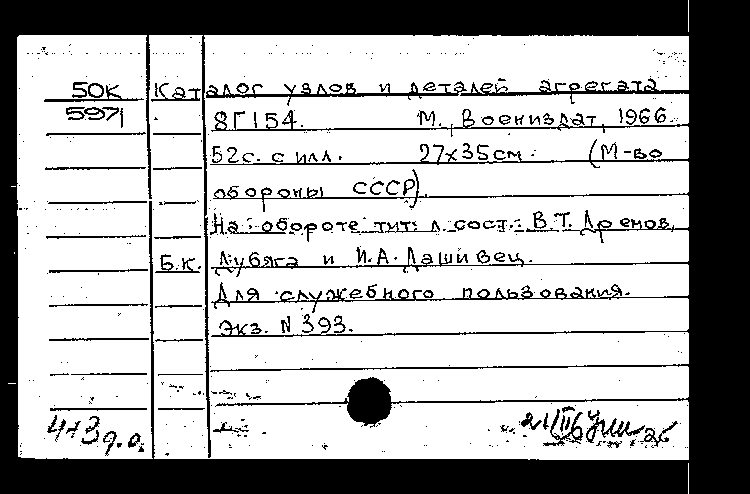 50К Каталог узлов и деталей агрегата
5971 8Г154. М., Воениздат, 1966.
52с. с илл. 27x35см. (М-во
обороны СССР).
На обороте тит. л. сост.: В.Т. Дремов,
Б.К. Дубяга и И.А. Дашивец.
Для служебного пользования.
Экз. N 393.
4+3 д.о.